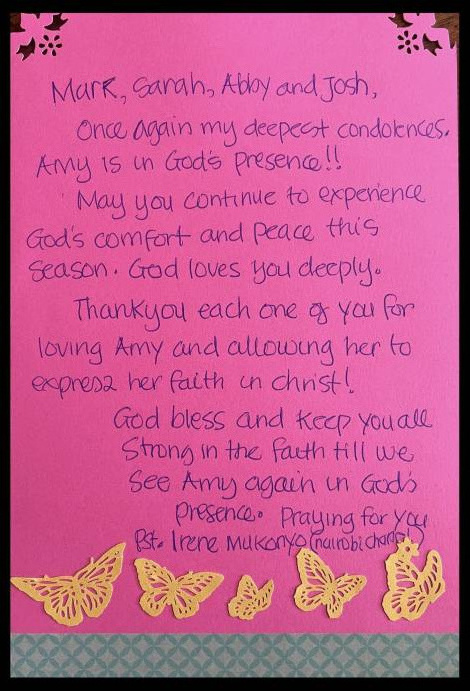 Mark, Sarah, Abby and Josh,
Once again my deepest condolences.
Amy is in God's presence!!
May you continue to experience
God's comfort and peace this
season. God loves you deeply.
Thankyou each one of you for
loving Amy and allowing her to
express her faith in christ!
God bless and keep you all
Strong in the faith till we
See Amy again in God's
presence. Praying for you
Pst. Irene Mukonyo (nairobi